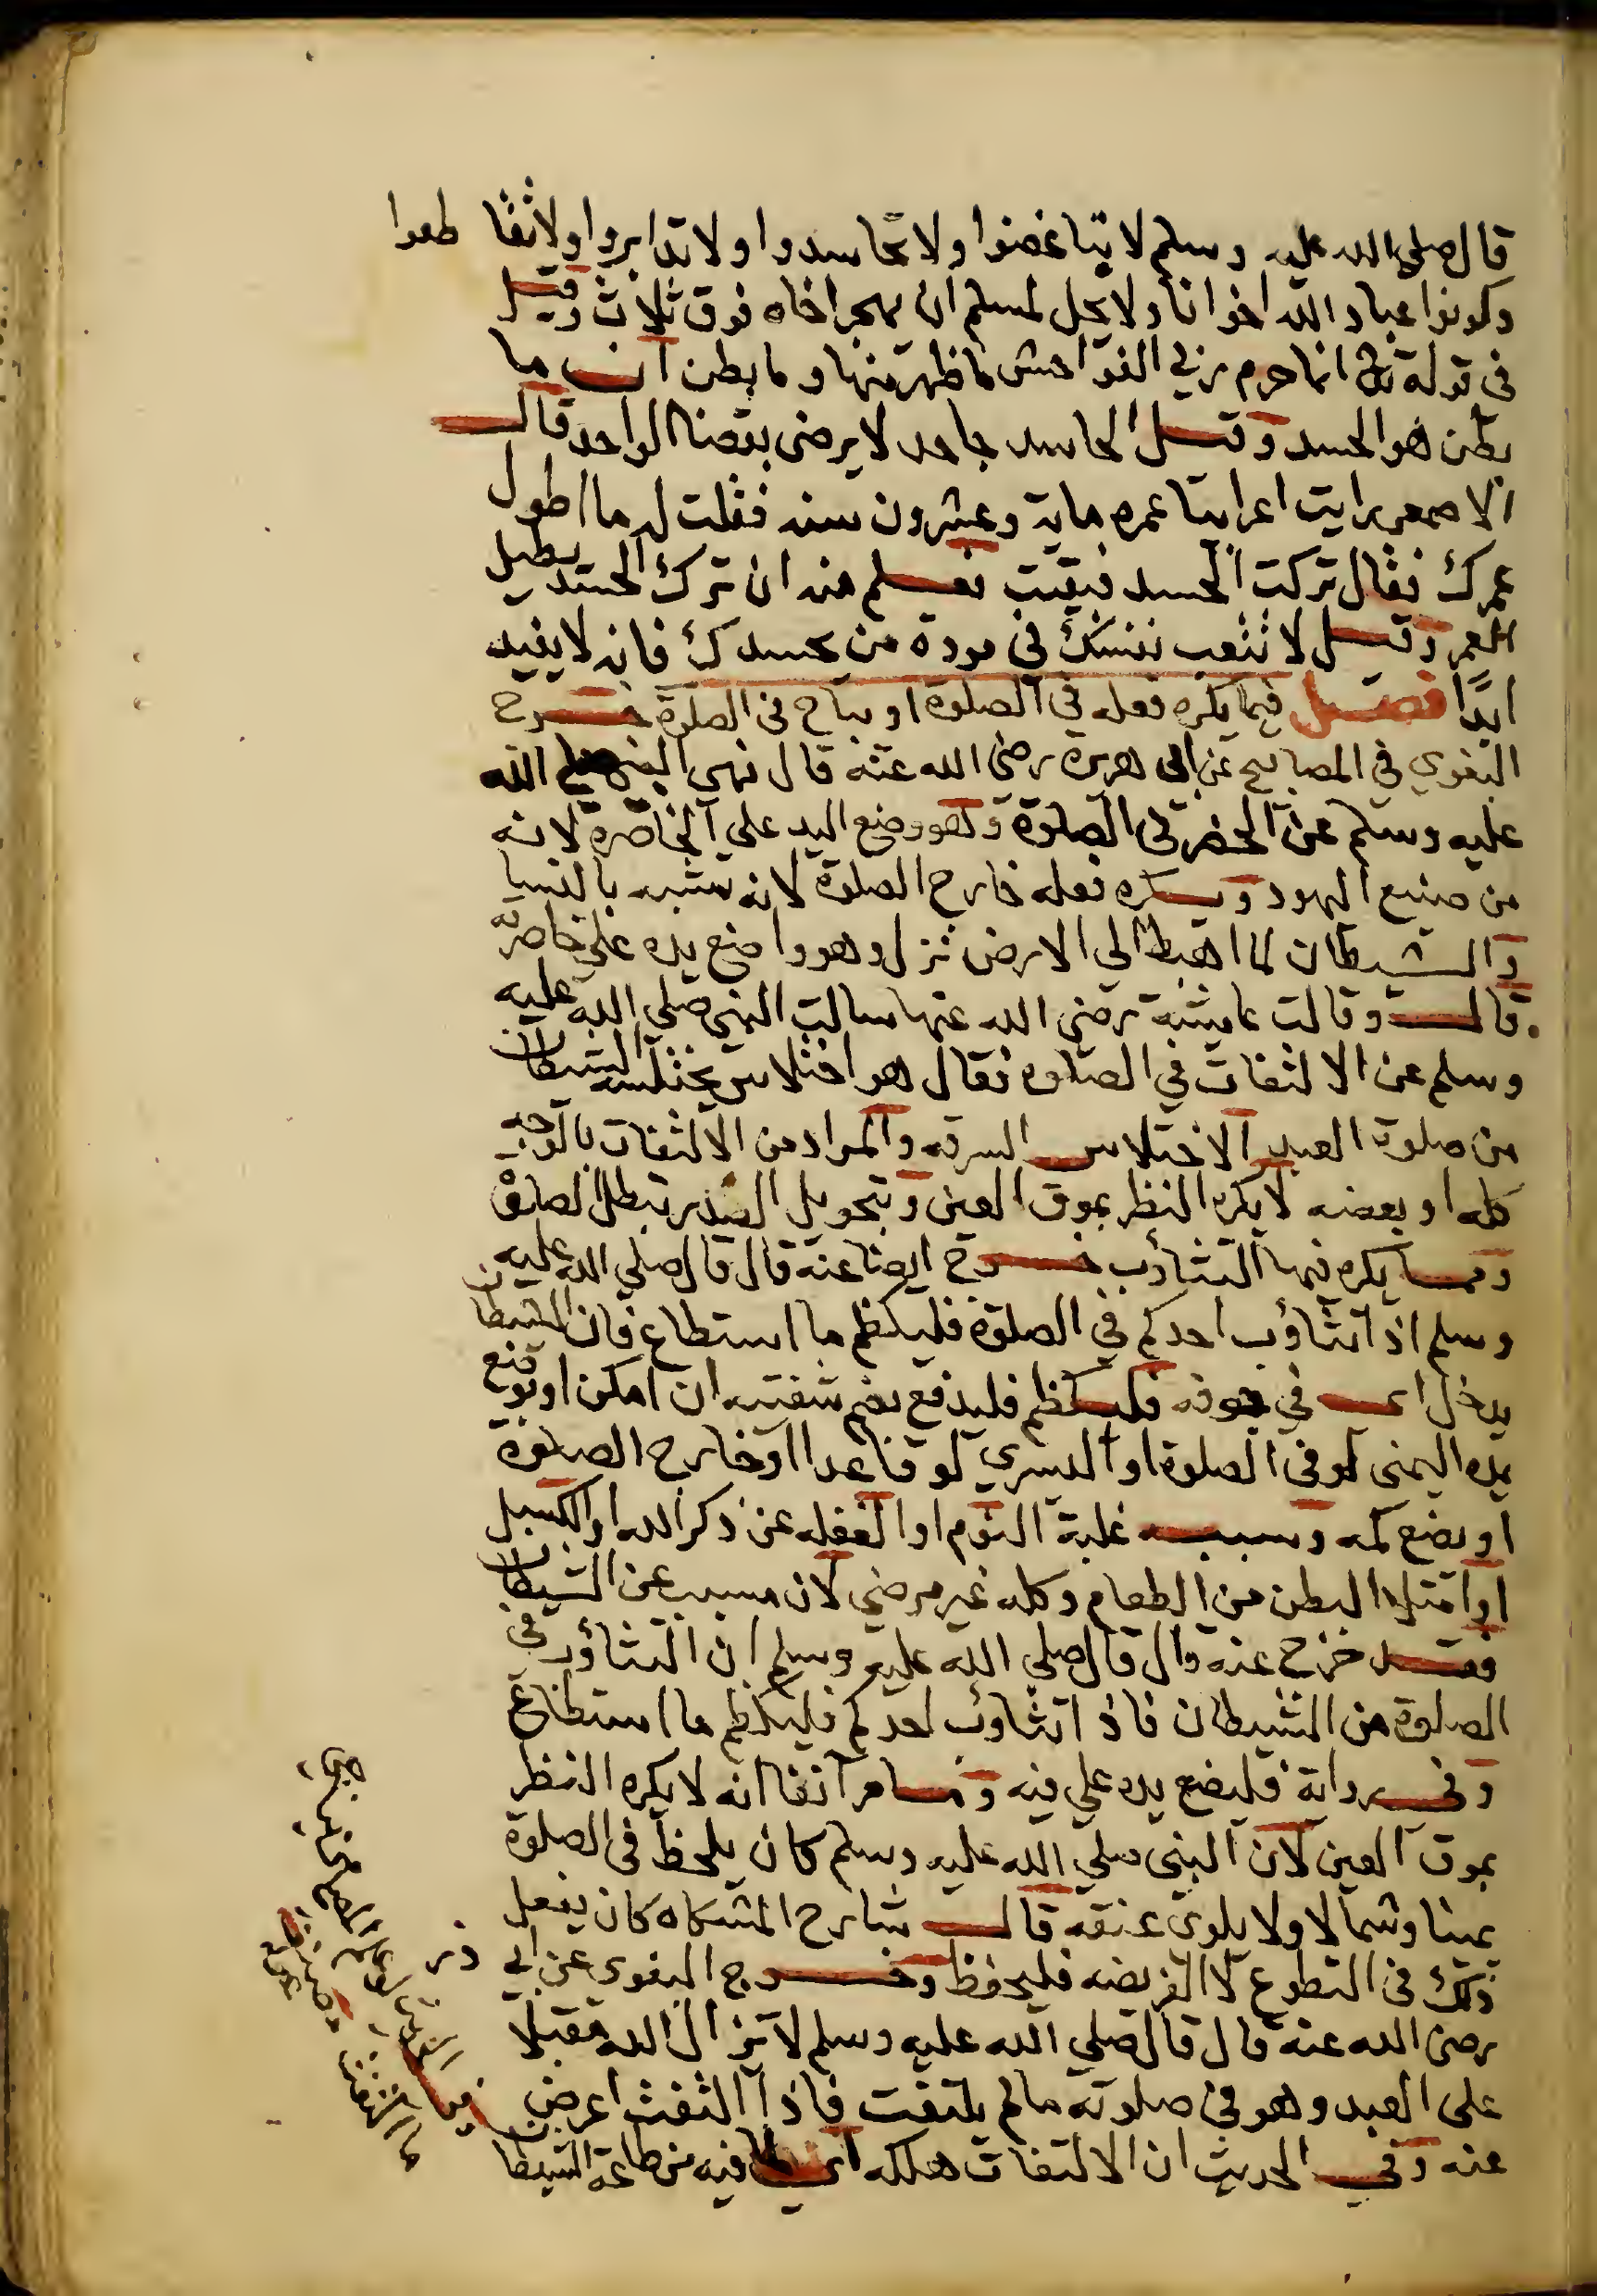 قال صلى الله عليه وسلم لا تباغضوا ولا تحاسدوا ولا تدابروا ولا تقاطعوا
وكونوا عباد الله اخوانا ولا يحل لمسلم ان يهجر اخاه فوق ثلاث وقيل
في قوله تعالى انما حرم ربي الفواحش ما ظهر منها وما بطن ان ما
بطن هو الحسد وقيل الحاسد جاحد لا يرضى بقضا الواحد قال
الاصمعي رايت اعرابيا عمره ماية وعشرون سنه فقلت له ما اطول
عمرك فقال تركت الحسد فبقيت فعلم منه ان ترك الحسد يطيل
العمر وقيل لا تتعب نفسك في مودة من يحسدك فانه لا يفيد
ابدا فصل فيما يكره فعله في الصلوة او يباح في الصلوة خرج
البغوي في المصابيح عن ابى هريرة رضى الله عنه قال نهى النبي صلى الله
عليه وسلم عن الخصر في الصلوة وهو وضع اليد على الخاصرة لانه
من صنيع اليهود ويكره فعله خارج الصلوة لانه متشبه بالنسا
والشيطان لما اهبط الى الارض نزل وهو واضع يده على خاصرته
قال وقالت عايشة رضى الله عنها سالت النبي صلى الله عليه
وسلم عن الالتفات في الصلوة فقال هو اختلاس يختلسه الشيطان
من صلوة العبد الاختلاس السرقه والمراد من الالتفات بالوجه
كله او بعضه لا يكره النظر بموق العين وبتحويل الصدر تبطل الصلوة
ومما يكره فيها التثاؤب خرج ايضا عنه قال قال صلى الله عليه
وسلم اذا تثاؤب احدكم في الصلوة فليكظم ما استطاع فان الشيطان
يدخل اى في جوفه فليكظم فليدفع بضم شفتيه ان امكن او بوضع
يده اليمنى لو في الصلوة او اليسري لو قاعدا او خارج الصلوة
او بضع كمه وسببه غلبة النوم او الغفله عن ذكر الله او الكسل
او امتلا البطن من الطعام وكله غير مرضي لان مسبب عن الشيطان
فقد خرج عنه قال قال صلى الله عليه وسلم ان التثاؤب في
الصلوة من الشيطان فاذا تثاوب احدكم فليكظم ما استطاع
وفي رواية فليضع يده على فيه وما مر آنفا انه لا يكره النظر
بموق العين لان النبى صلى الله عليه وسلم كان يلحظ في الصلوة
يمينا وشمالا ولا يلوى عنقه قال شارح المشكاه كان يفعل
ذلك في التطوع لا الفريضه فليحفظ وخرج البغوي عن ابي ذر
رضى الله عنه قال قال صلى الله عليه وسلم لا يزال الله مقبلا
على العبد وهو في صلوته ما لم يلتفت فاذا التفت اعرض
عنه وفي الحديث ان الالتفات هلكه اى لما فيه من طاعة الشيطان
ما التفت